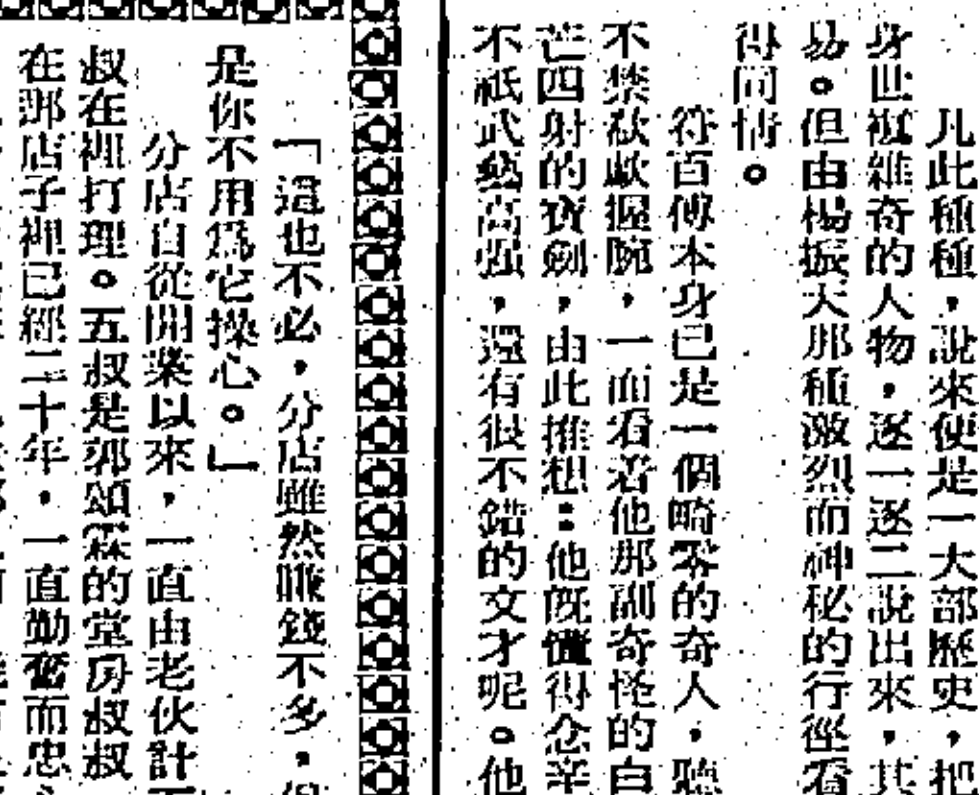 凡此種種，說來便是一大部歷史，把
身世複雜奇的人物，逐一逐二說出來，其
易。但由楊振天那種激烈而神秘的行徑看
得同情。
符百傅本身已是一個畸零的奇人，聽
不禁欷歔握腕，一面看着他那副奇怪的白
芒四射的寶劍，由此推想：他既懂得念辛
不祇武藝高强，還有很不錯的文才呢。他
「這也不必，分店雖然賺錢不多，
是你不用爲它操心。」
分店自從開業以來，一直由老伙計
叔在裡打理。五叔是郭頌霖的堂房叔叔
在那店子裡已經二十年，一直勤奮而忠